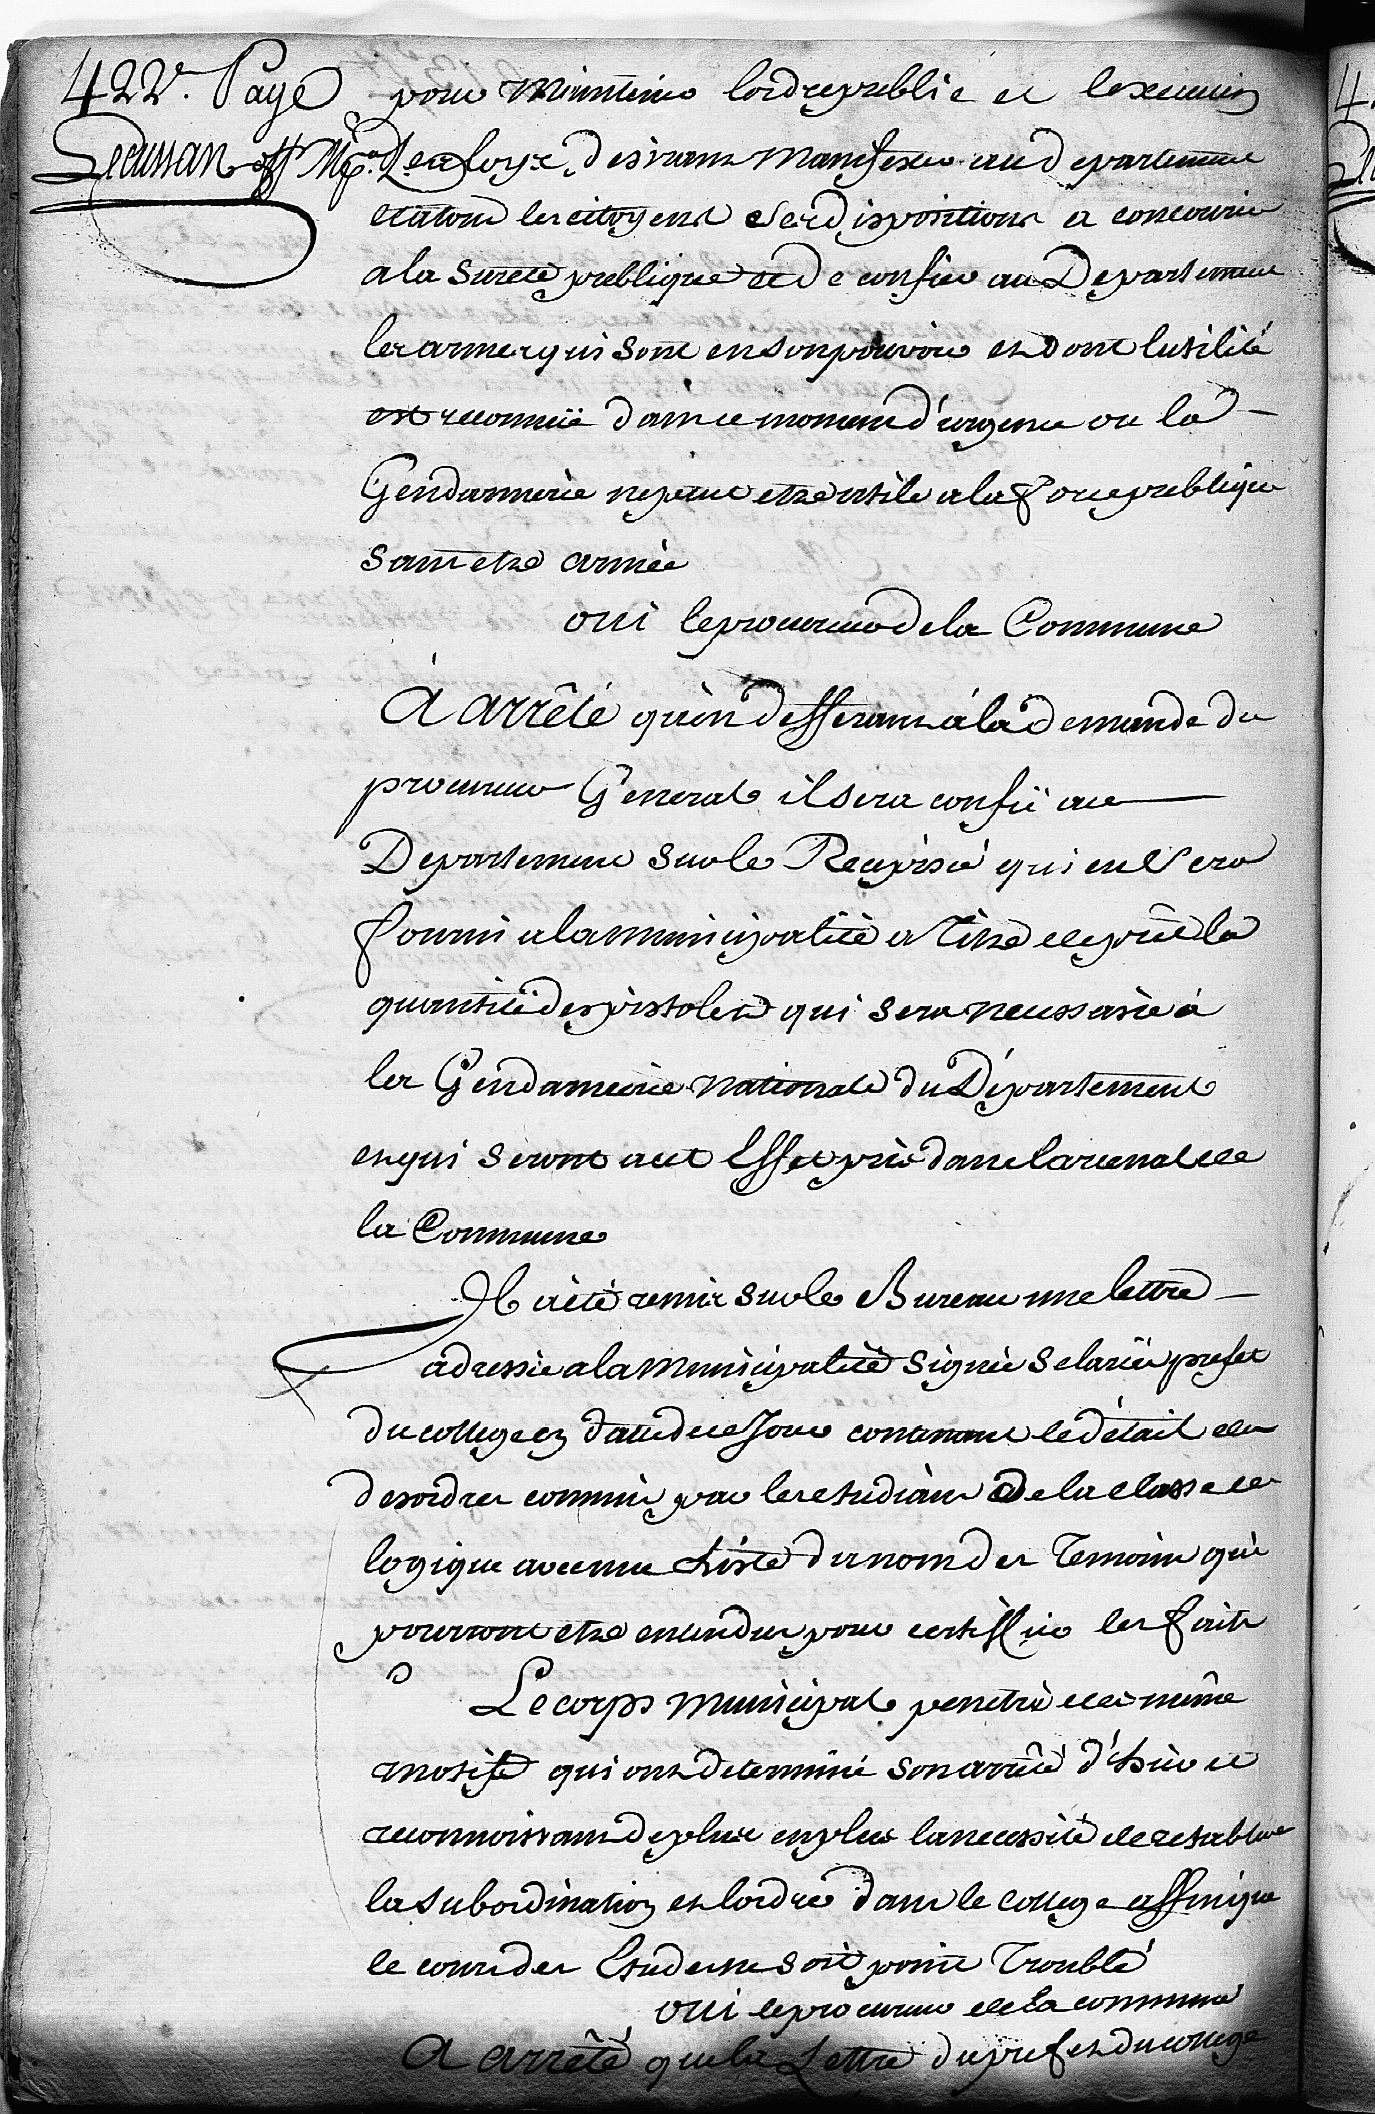 422e. Page
Lecussan off Mpal
pour Maintenir lordre publie et lexecution
De la loy, desirant Manifester au departement
et a tous les citoyens ses dispositions a concourir
a la sureté publique et de confier au Departement
les armes qui sont en son pouvoir et dont lutilité
est reconnüe dans ce moment d'urgence ou la
Gendarmerie ne peut etre utile a la force publique
sans etre armée
oui le procureur de la Commune
A arrêté qu'en defferant à la demande du
procureur General il sera confié au
Departement sur le Recepissé qui en sera
fourni a la municipalité a titre de prêt la
quantité de pistolets qui sera necessaire à
la Gendarmerie nationale du Département
et qui seront a cet Effet pris dans larcenal de
la Commune
Il a été remis sur le Bureau une lettre
adressée a la Municipalité signée prefet
du college en datte de ce Jour contenant le détail des
desordres commis par les etudians de la classe de
logique avec une Liste du nom des Temoins qui
pourront etre entendus pour certiffier les faits
Le corps Municipal penetré des même
motifs qui ont determiné son arrêté d'hier et
reconnoissant de plus en plus la necessité de retablir
la subordination et lordre dans le college affin que
le cours des Etudes ne soit point Troublé
oui le procureur de la commune
A arrêté que la Lettre du prefet du college